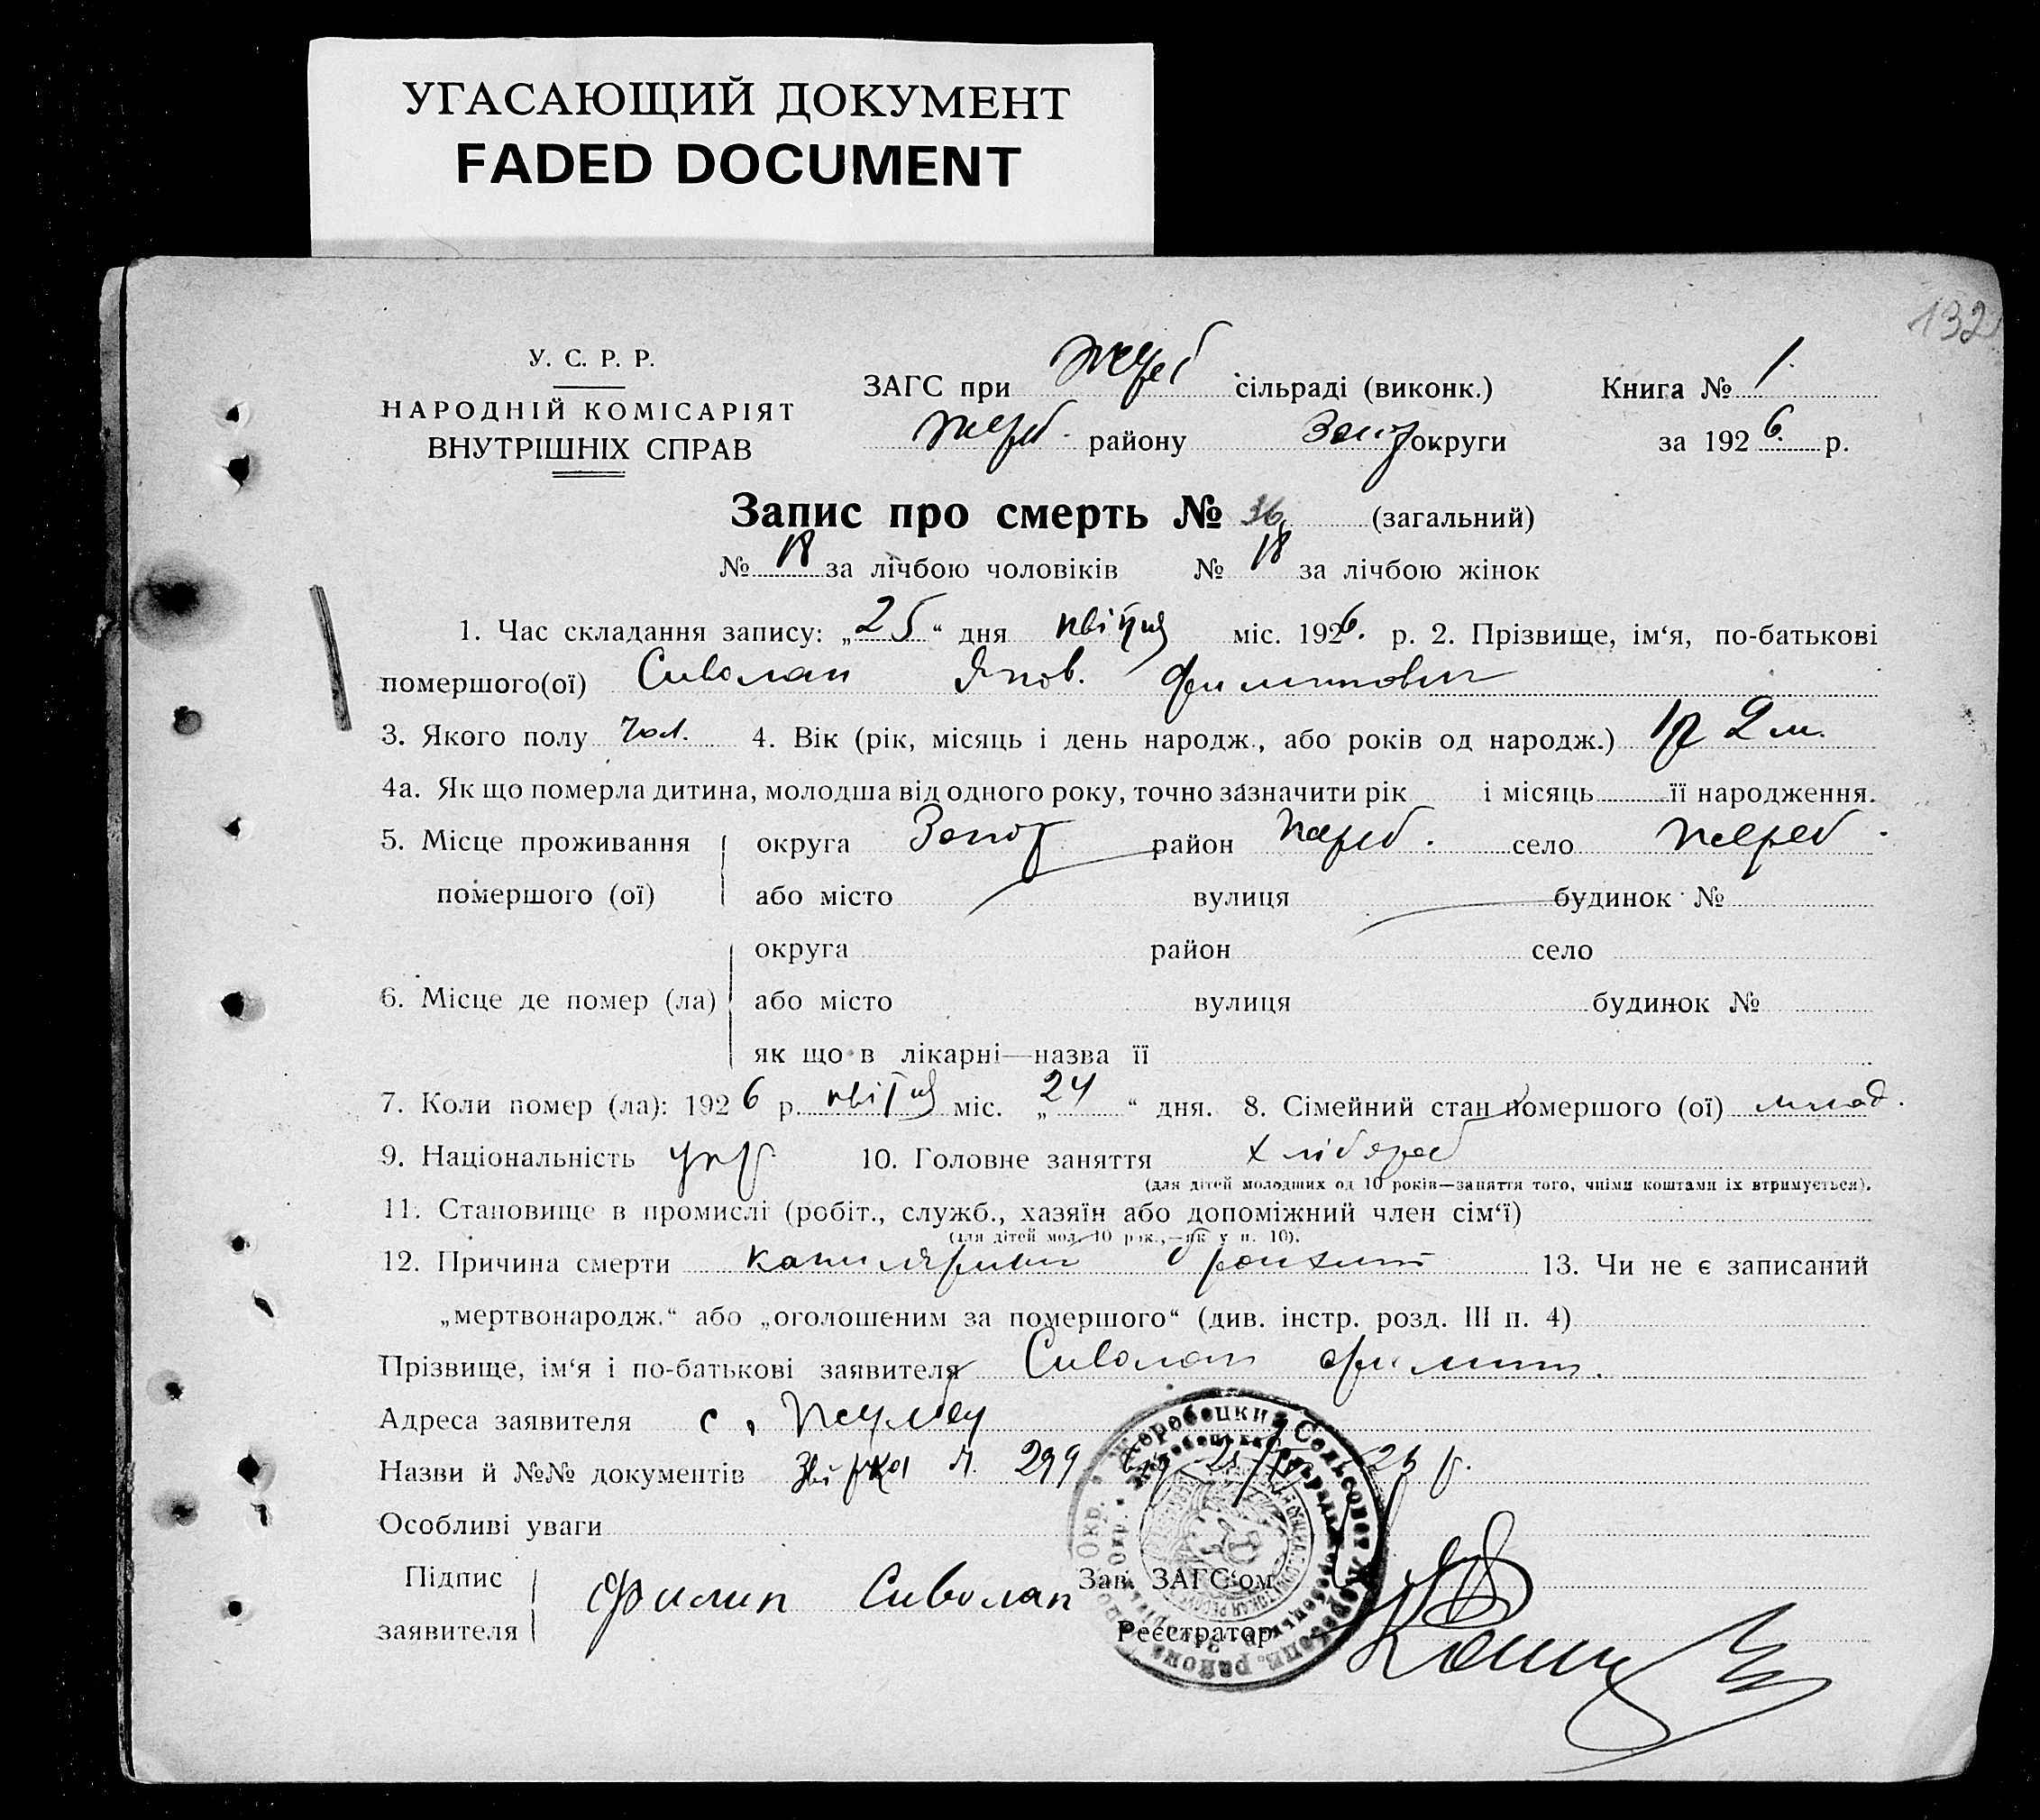 УГАСАЮЩИЙ ДОКУМЕНТ
FADED DOCUMENT
132
У. С. Р. Р.
НАРОДНІЙ КОМІСАРІЯТ
ВНУТРІШНІХ СПРАВ
ЗАГС при Жереб сільраді (виконк.)
Жереб. району Запор округи
Книга № 1.
за 1926. р.
Запис про смерть № 36 (загальний)
№ 18 за лічбою чоловіків № 18 за лічбою жінок
1. Час складання запису: „25“ дня квітня міс. 1926. р. 2. Прізвище, ім‘я, по-батькові
помершого(ої) Сиволап Яков. Филипович
3. Якого полу чол. 4. Вік (рік, місяць і день народж., або років од народж.) 1р 2 м.
4а. Як що померла дитина, молодша від одного року, точно зазначити рік і місяць її народження.
5. Місце проживання округа Запор район Жереб. село Жереб.
помершого (ої) або місто вулиця будинок №
округа район село
6. Місце де помер (ла) або місто вулиця будинок №
як що в лікарні—назва її
7. Коли помер (ла): 1926 р. квітня міс. „24“ дня. 8. Сімейний стан помершого (ої) млад.
9. Національність укр 10. Головне заняття хлібороб
(для дітей молодших од 10 років—заняття того, чиїми коштами їх втримується).
11. Становище в промислі (робіт., служб., хазяїн або допоміжний член сім‘ї)
(для дітей мол. 10 рок.,—як у п. 10).
12. Причина смерти капилярний бронхит 13. Чи не є записаний
„мертвонародж.“ або „оголошеним за помершого“ (див. інстр. розд. III п. 4)
Прізвище, ім‘я і по-батькові заявителя Сиволап Филип.
Адреса заявителя с.
Назви й №№ документів 299 26 р.
Особливі уваги
Підпис заявителя Филип Сиволап
Зав. ЗАГС‘ом
Реєстратор